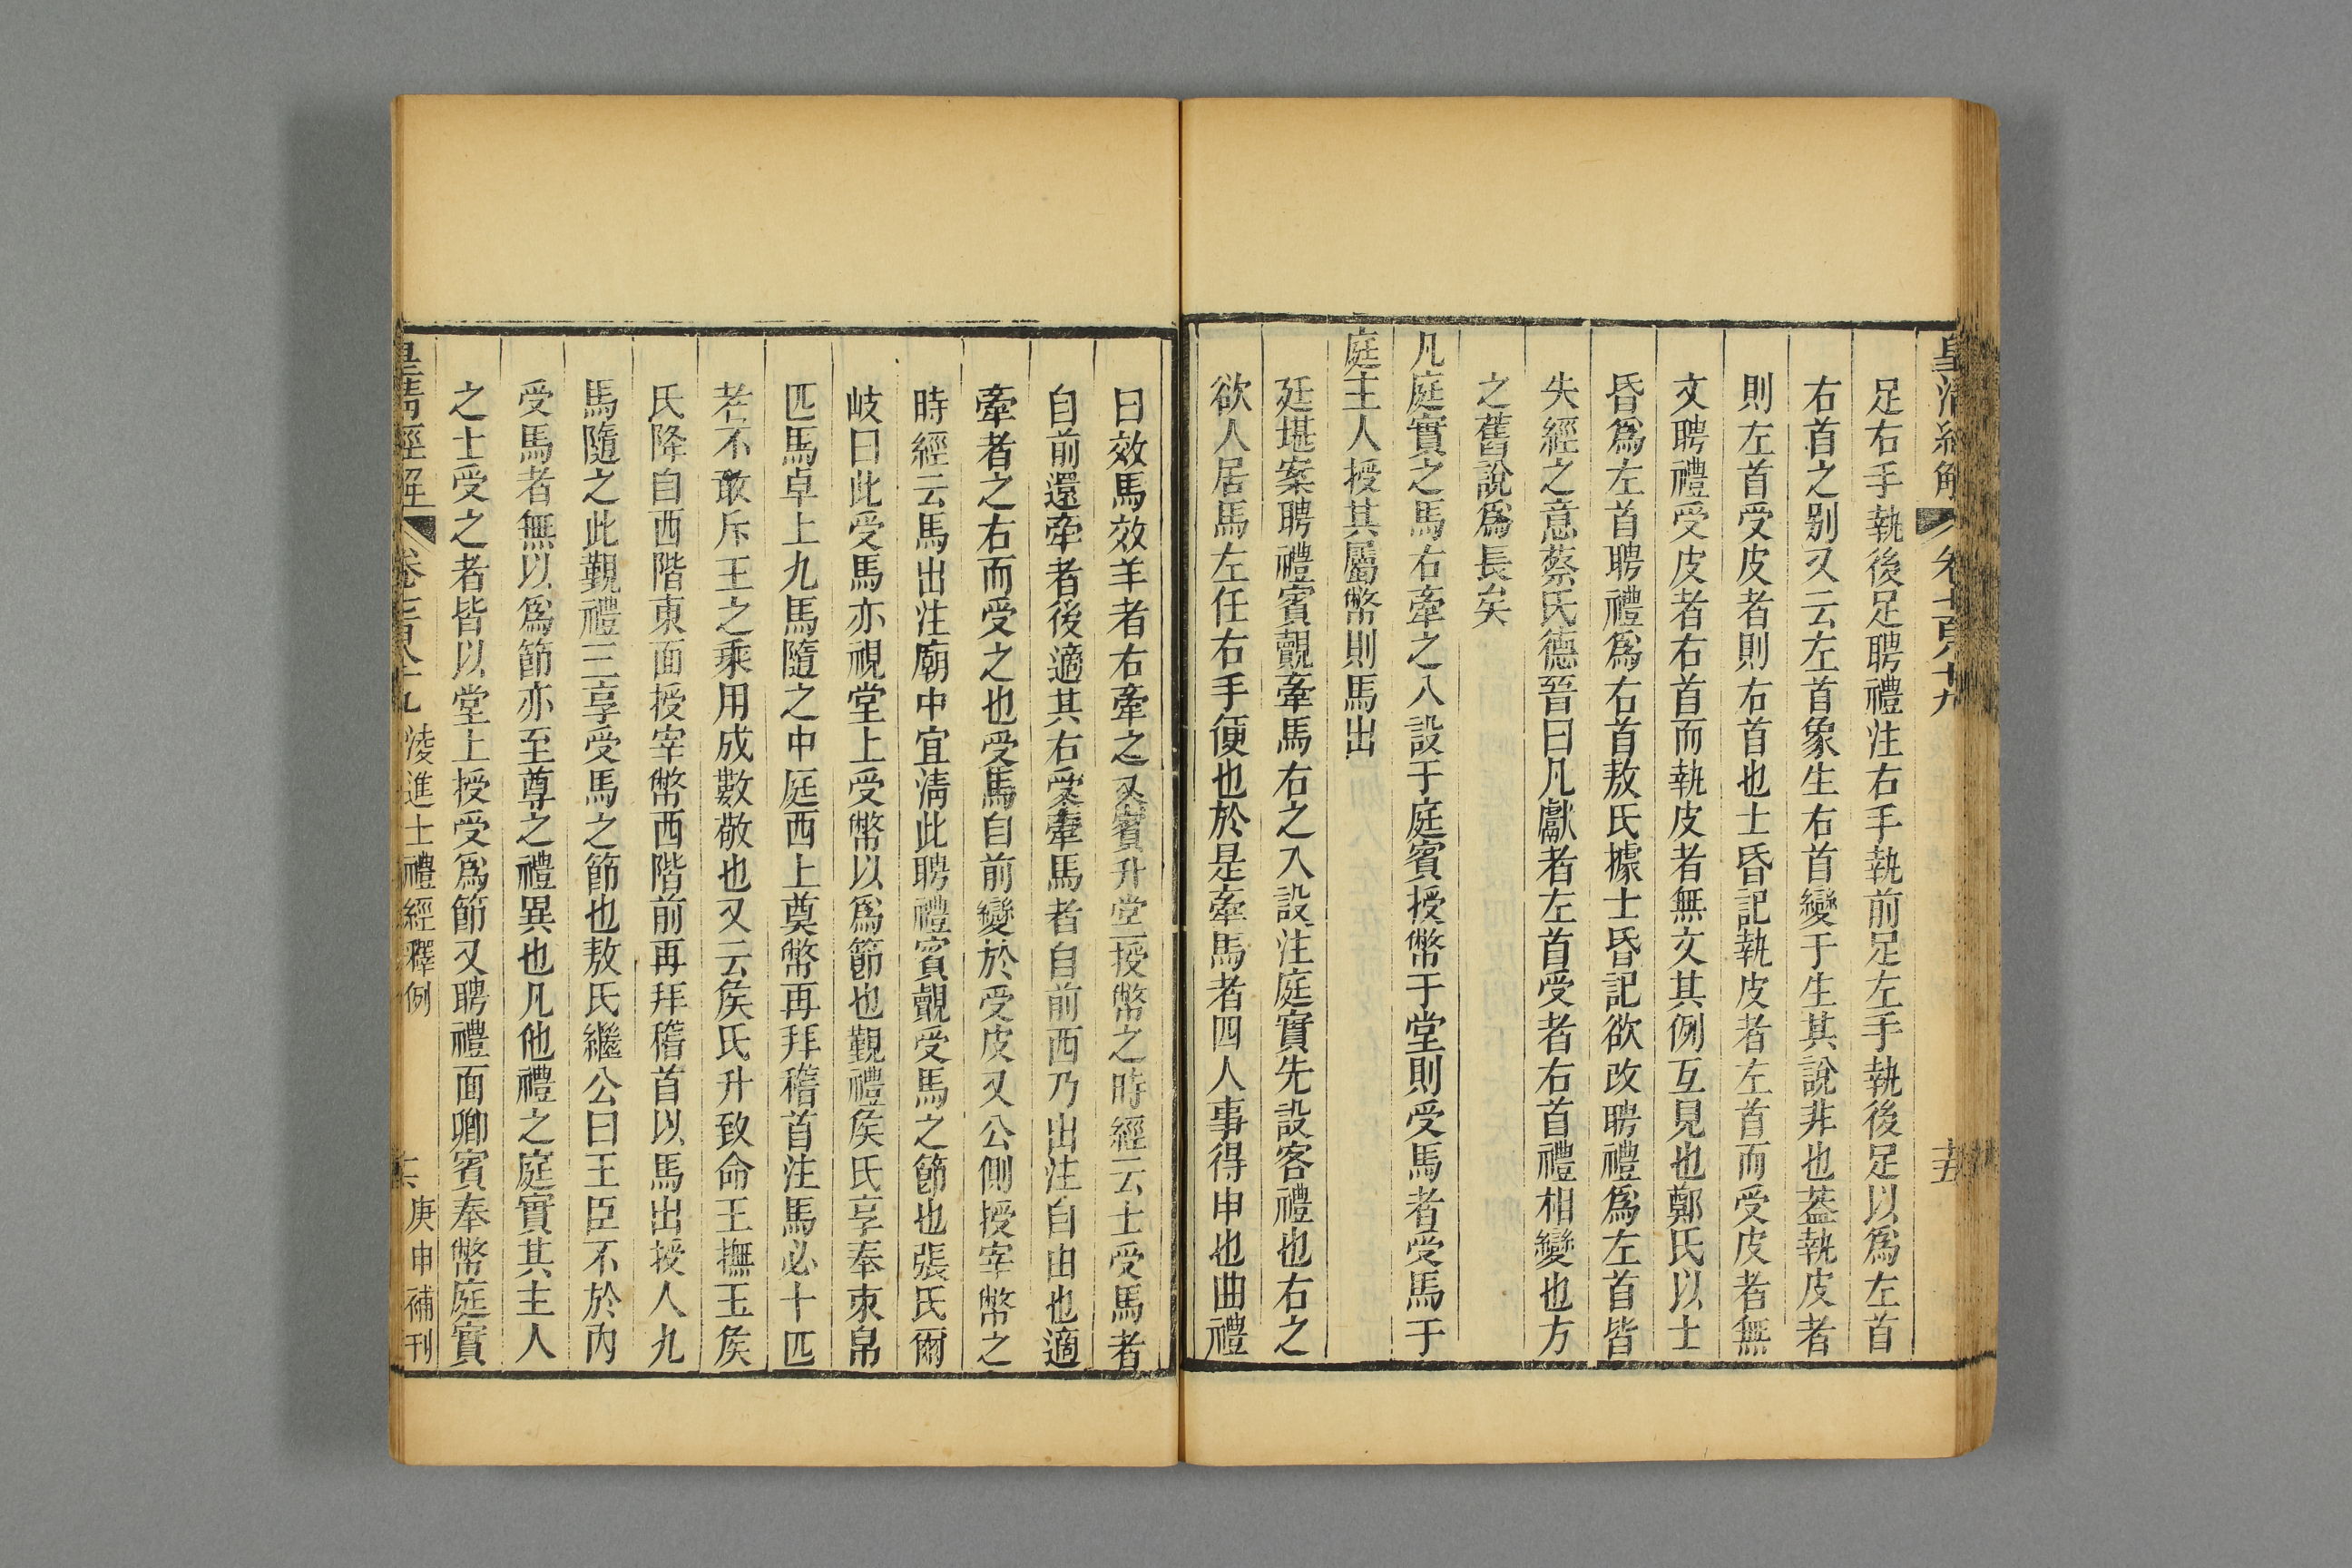 皇清經解
卷七百八十九
十五
足右手執後足聘禮注右手執前足左手執後足以爲左首
右首之别又云左首象生右首變于生其說非也葢執皮者
則左首受皮者則右首也士昏記執皮者左首而受皮者無
文聘禮受皮者右首而執皮者無文其例互見也鄭氏以士
昏爲左首聘禮爲右首敖氏據士昏記欲改聘禮爲左首皆
失經之意蔡氏德晉曰凡獻者左首受者右首禮相變也方
之舊說爲長矣
凡庭實之馬右牽之入設于庭賓授幣于堂則受馬者受馬于
庭主人授其屬幣則馬出
廷堪案聘禮賓覿牽馬右之入設注庭實先設客禮也右之
欲人居馬左任右手便也於是牽馬者四人事得申也曲禮
曰效馬效羊者右牽之又賓升堂授幣之時經云士受馬者
自前還牽者後適其右受牽馬者自前西乃出注自由也適
牽者之右而受之也受馬自前變於受皮又公側授宰幣之
時經云馬出注廟中宜淸此聘禮賓覿受馬之節也張氏爾
岐曰此受馬亦視堂上受幣以爲節也覲禮矦氏享奉束帛
匹馬卓上九馬隨之中庭西上奠幣再拜稽首注馬必十匹
者不敢斥王之乘用成數敬也又云矦氏升致命王撫玉矦
氏降自西階東面授宰幣西階前再拜稽首以馬出授人九
馬隨之此覲禮三享受馬之節也敖氏繼公曰王臣不於內
受馬者無以爲節亦至尊之禮異也凡他禮之庭實其主人
之士受之者皆以堂上授受爲節又聘禮面卿賓奉幣庭實
皇清經解
卷七百八十九
凌進士禮經釋例
十六
庚申補刊